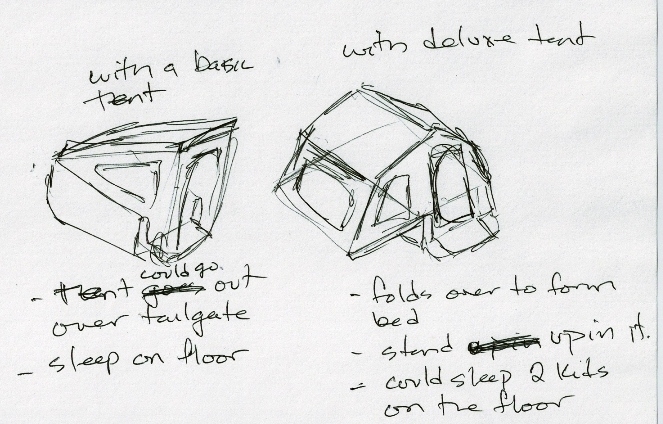 with a basic
tent
with deluxe tent
- tent could go out
over tailgate
- sleep on floor
- folds over to form
bed
- stand up in it.
- could sleep 2 kids
on the floor